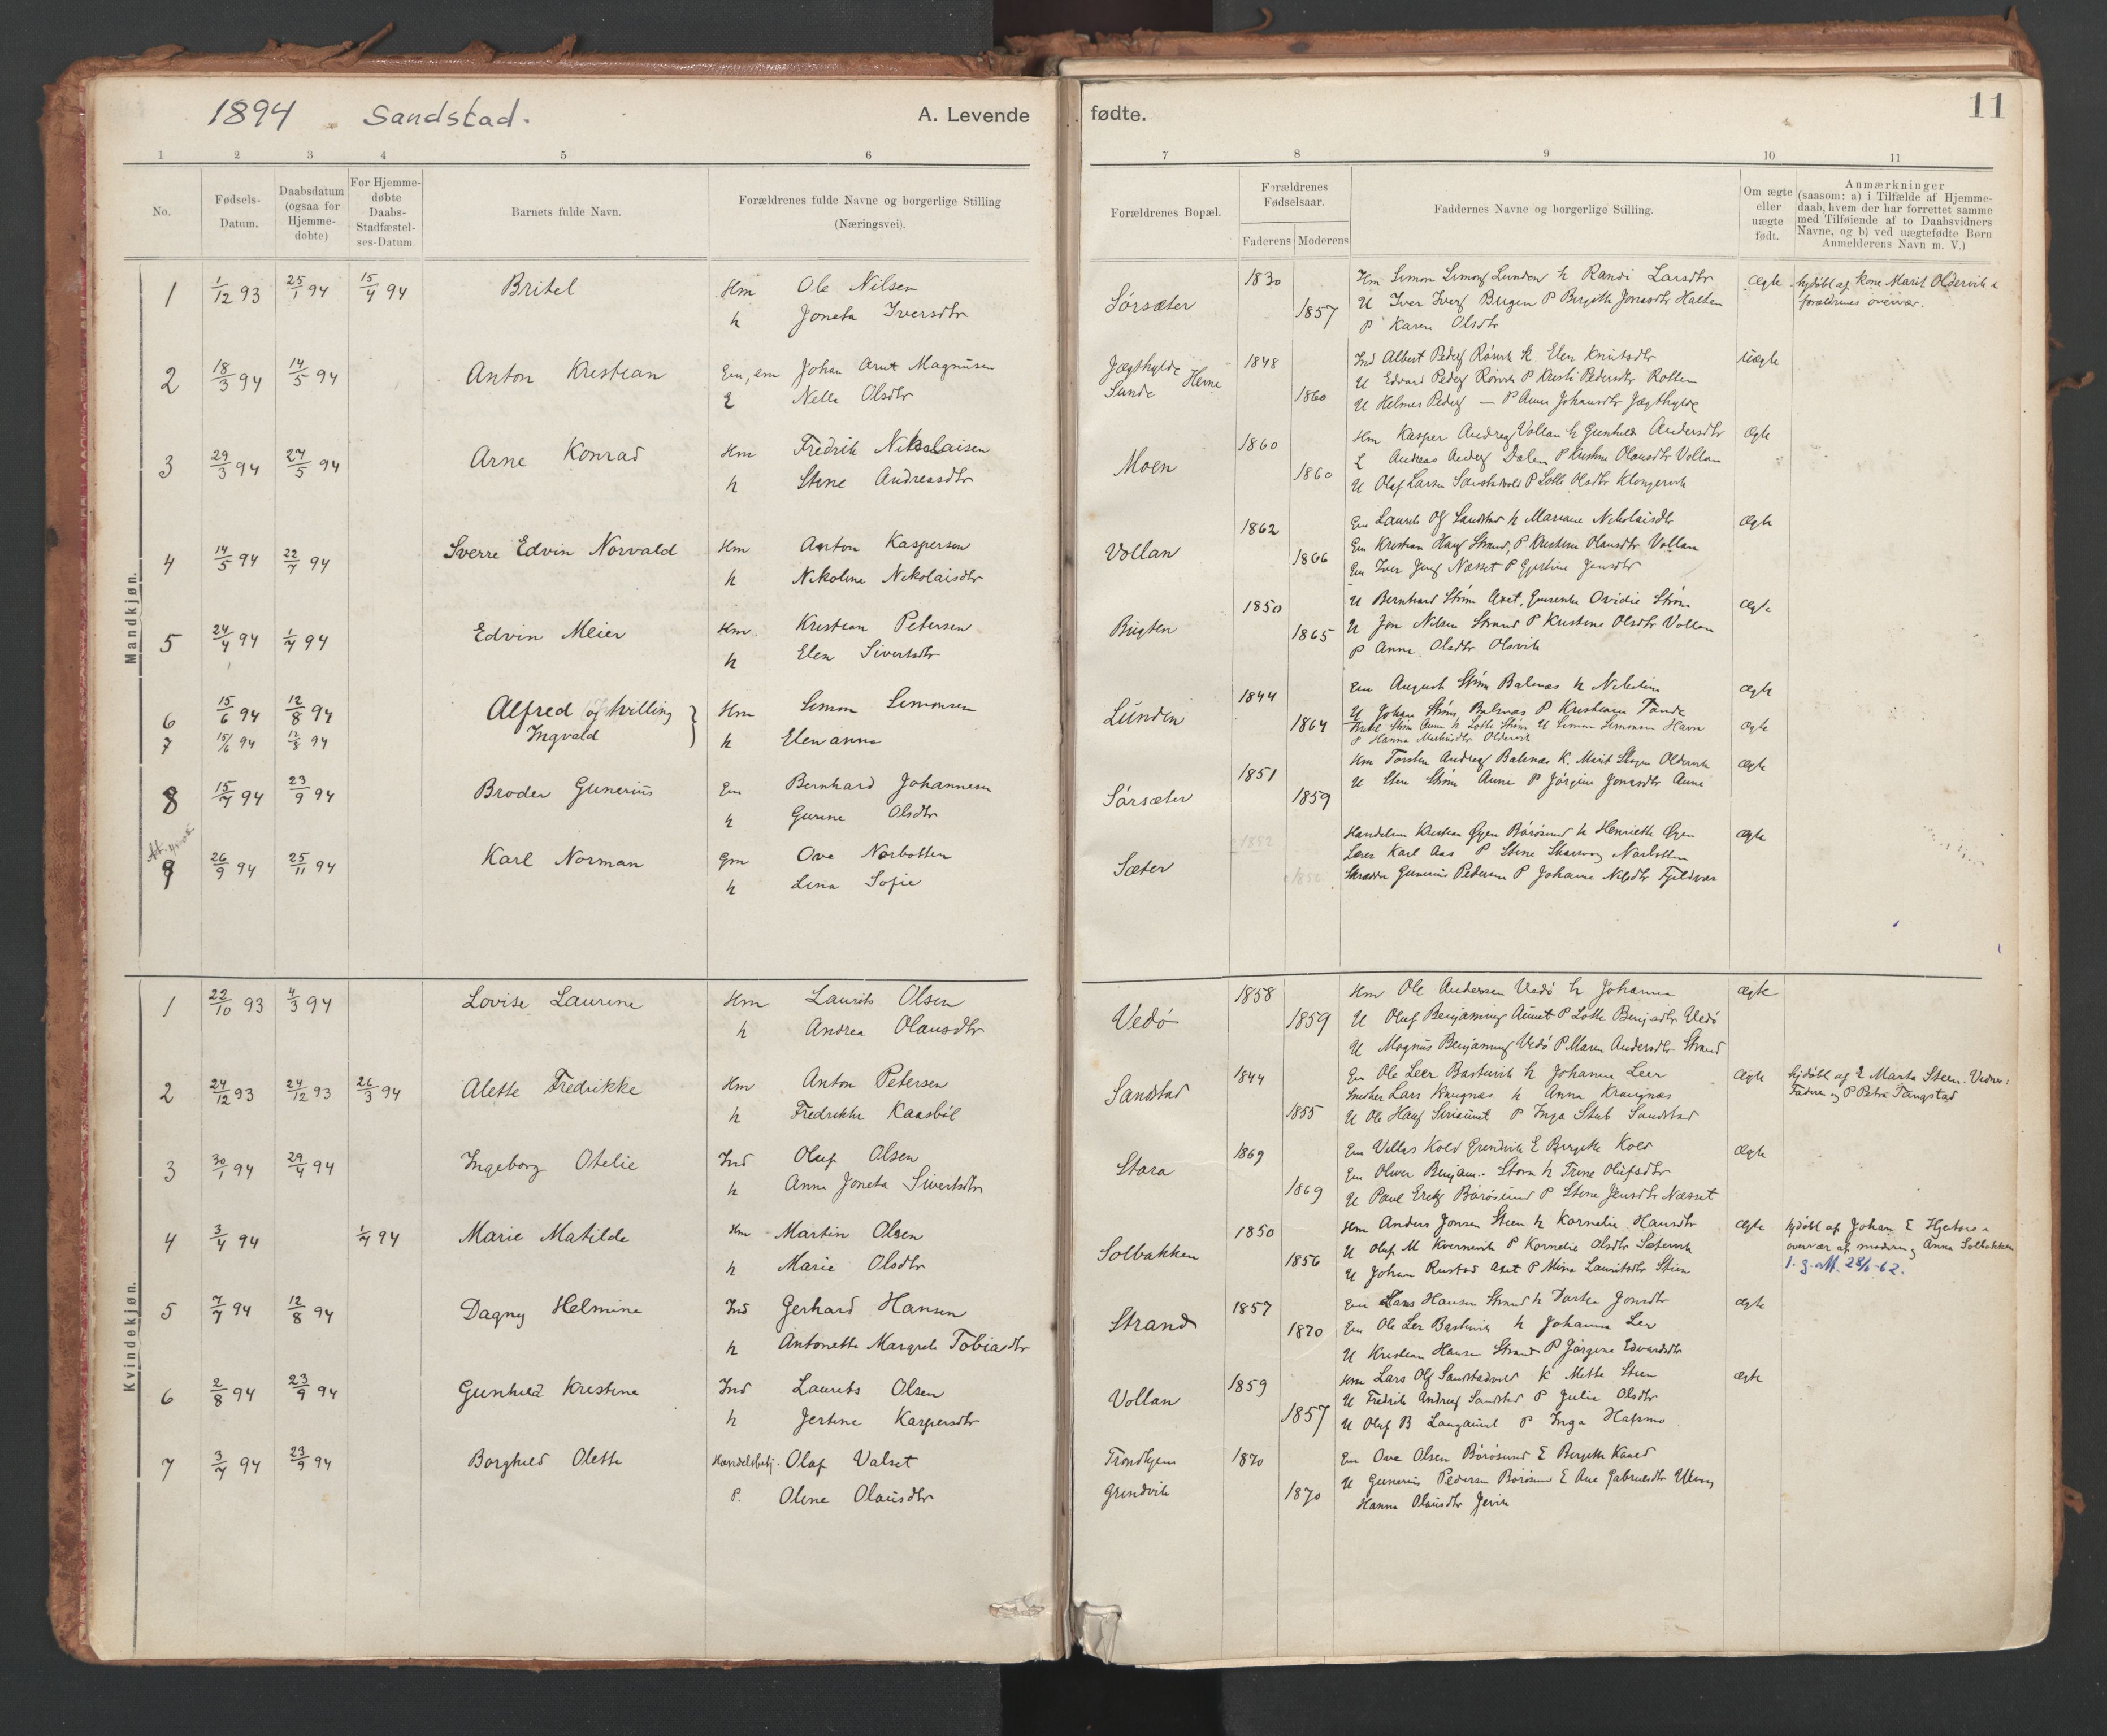 1894 Sandstad.
A. Levende fødte.
11
1 2 3 4 5 6 7 8 9 10 11
No.
Fødsels-
Datum.
Daabsdatum
(ogsaa for
Hjemme-
døbte)
For Hjemme-
døbte
Daabs-
Stadfæstel-
ses-Datum
Barnets fulde Navn.
Forældrenes fulde Navne og borgerlige Stilling
(Næringsvei).
Forældrenes Bopæl.
Forældrenes
Fødselsaar.
Faderens Moderens
Faddernes Navne og borgerlige Stilling.
Om ægte
eller
uægte
født.
Anmærkninger
(saasom: a) i Tilfælde af Hjemme-
daab, hvem der har forrettet samme
med Tilføiende af to Daabsvidners
Navne, og b) ved uægtefødte Børn
Anmelderens Navn m. V.)
Mandkjøn.
1 1/12 93 25/1 94 15/4 94 Britel Hm Ole Nilsen
h Joneta Iversdtr
Sørsæter 1830 1857
Hm Simon Simons Lunden h Randi Larsdtr
U Iver Ivers Burgen P Birgitte Jonasdtr Halten
P Karen Olsdtr
Ægte hjdøbt af Kone Marit Oldervik i
forældrenes overvær.
2 18/3 94 14/5 94 Anton Kristian Em, em Johan Arnt Magnusen
E Nella Olsdtr
Jægthylde Hevne
Sunde 1848 1860
Ind Albert Peders Rørvik h. Elen Knutsdtr
U Edvard Peders Rørvik P Kristi Pedersdtr Rottem
U Helmer Peders — P Anna Johansdtr Jægthylde
Uægte
3 29/3 94 24/5 94 Arne Konrad Hm Fredrik Nikolaisen
h Stine Andreasdtr
Moen 1860 1860
Hm Kasper Andreas Vollan h Gunhild Andersdtr
L Andreas Anders Dalen P Kristine Olausdtr Vollan
U Olaf Larsen Sandstadvold P Lotte Olsdtr Klongervik
Ægte
4 14/5 94 22/7 94 Sverre Edvin Norvald Hm Anton Kaspersen
h Nikoline Nikolaisdtr
Vollan 1862 1866
Em Laurits Ols Sandstad h Mariane Nikolaisdtr
Em Kristian Hans Strand, P Kristine Olausdtr Vollan
Em Iver Jens Næsset P Gjertine Jensdtr
Ægte
5 24/4 94 1/7 94 Edvin Meier Hm. Kristian Petersen
h Elen Sivertsdtr
Bugten 1850 1865
U Bernhard Strøm Axet, Ovidie Strøm
U Jon Nilsen Strand P Kristine Olsdtr Vollan
P Anna Olsdtr Olsvik
Ægte
6 15/6 94 12/8 94 Alfred og tvilling Hm Simon Simonsen
7 15/6 94 12/8 94 Ingvald h Elen anna
Lunden 1844 1864
Em August Strøm Balsnæs h Nikoline
U Johan Strøm, Balsnæs P Kristiane Tande
Strøm Aune h Lotte Strøm U Simon Simonsen Havn
P Hanna Oldervik
Ægte
Ægte
8 15/7 94 23/9 94 Broder Gunerius Em Bernhard Johannesen
h Gurine Olsdtr
Sørsæter 1851 1859
Hm Torsten Andreas Balsnæs K. Marit Skogen Oldervik
U Sten Strøm Aune P Jørgine Jonasdtr Aune
Ægte
9 26/9 94 25/11 94 Karl Norman Gm Ove Norbotten
h Lina Sofie
Sæter 1852 1852
Handelsm Kristian Øyen Børøsund h Henriette Øyen
Lærer Karl Aas P Stine Norbotten
Skrædder Gunerius Pedersen P Johanne Nilsdtr Fjeldvær
Ægte
Kvindekjøn.
1 22/10 93 4/3 94 Lovise Laurine Hm Laurits Olsen
h Andrea Olausdtr
Vedø 1858 1859
Hm Ole Andersen Vedø h Johanna
U Oluf Benjamins Aunet P Lotte Benjsdtr Vedø
U Magnus Benjamins Vedø P Maren Andersdtr Strand
Ægte
2 24/12 93 24/12 93 26/3 94 Alette Fredrikke Hm Anton Petersen
h Fredrikke Kaasbøl
Sandstad 1844 1855
Em Ole Leer Bastuvik h Johanna Leer
Snedker Lars Krangnæs h Anna Krangnæs
U Ole Hans P Inga Stub Sandstad
Ægte hjdøbt af E Marta Steen. Vidner:
Faderen og P Petra Tangstad
3 30/1 94 29/4 94 Ingeborg Otelie Ind Oluf Olsen
h Anna Joneta Sivertsdtr
Stora 1869 1869
Em Vellas Kold Grindvik E Birgitte Kold
Em Oliver Benjam. Stora h Trine Olufsdtr
U Paul Eriks Børøsund P Stine Jensdtr Næsset
Ægte
4 3/4 94 1/7 94 Marie Matilde Hm Martin Olsen
h Marie Olsdtr
Solbakken 1850 1856
Hm Anders Jonsen Steen h Kornelie Hansdtr
U Oluf M Kvernevik P Kornelie Olsdtr Sætervik
U Johan Rustad Axet P Mina Lauritsdtr Steen
Ægte hjdøbt af Johan E Hjertaas i
overvær af moderen og Anna Solbakken
1. g. att. 28/6-62.
5 7/7 94 12/8 94 Dagny Helmine Ind Gerhard Hansen
h Antonette Margrete Tobiasdtr
Strand 1857 1870
Em Hans Hansen Strand h Dorthe Jonsdtr
Em Ole Ler Bastuvik h Johanna Ler
U Kristian Hansen Strand P Jørgine Edvardsdtr
Ægte
6 2/8 94 23/9 94 Gunhild Kristine Ind Laurits Olsen
h Jertine Kaspersdtr
Vollan 1859 1857
Hm Lars Ols Sandstadvold K Mette Steen
U Fredrik Andreas Sandstad P Julie Olsdtr
U Oluf B Langaunet P Inga Hafsmo
Ægte
7 3/7 94 23/9 94 Borghild Olette Handelsbetj. Olaf Valset
P. Oline Olausdtr
Trondhjem
Grindvik 1870 1870
Em Ove Olsen Børøsund E Bergitte Kaald
U Gunerius Pedersen Børøsund E Ane Gabrielsdtr
Hanna Olausdtr Jevik